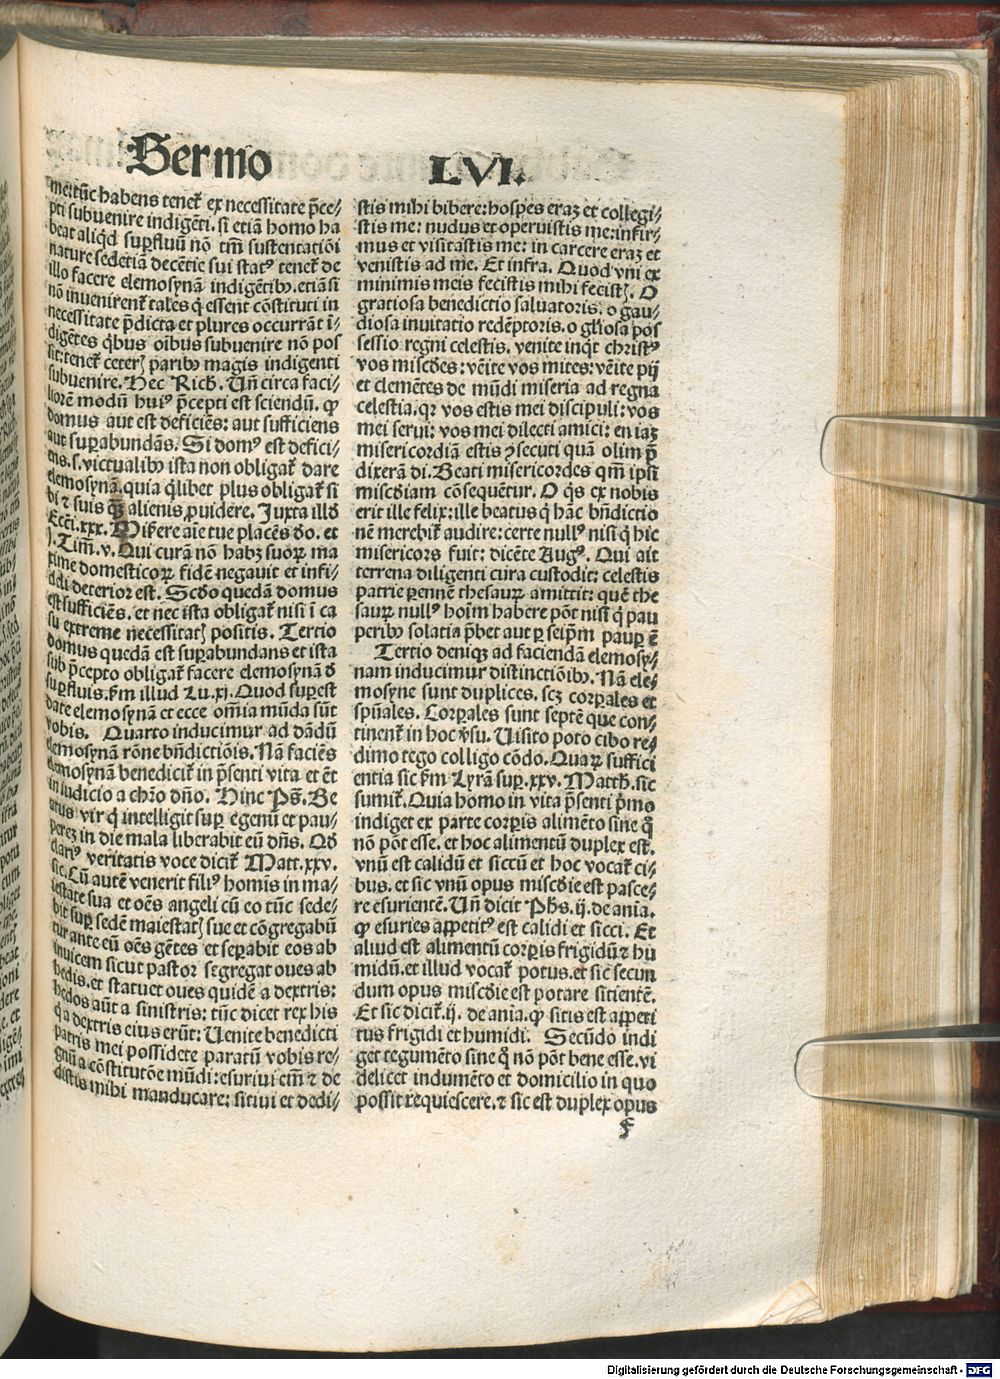 Sermo LVI.
me: tūc habens tenet᷑ ex necessitate p̄ce⸗
pti subuenire indigēti. si etiā homo ha
beat aliqd̄ suꝑfluū nō tm̄ sustentatiōi
nature sed etiā decētie sui statꝰ tenet᷑ de
illo facere elemosynā indigētibꝰ. etiā si
nō inuenirent᷑ tales q̇ essent cōstituti in
necessitate p̄dicta et plures occurrāt ī⸗
digētes q̇bus oībus subuenire nō pos
sit: tenet᷑ ceterꝭ paribꝰ magis indigenti
subuenire. Hec Rich. Un̄ circa faci⸗
liorē modū huiꝰ p̄cepti est sciendū. ꝙ
domus aut est deficiēs: aut sufficiens
aut suꝑabundās. Si domꝰ est defici⸗
ens. s. victualibꝰ ista non obligat᷑ dare
elemosynā. quia q̇libet plus obligat᷑ si
bi ⁊ suis qꝫ alienis ꝓuidere. Juxta illd̄
Ecc̄i. xxx. Miserere aīe tue placēs deo. et
j. Tim̄. v. Qui curā nō habꝫ suoꝝ ma
xime domesticoꝝ fidē negauit et infi⸗
deli deterior est. Scd̄o quedā domus
est sufficiēs. et nec ista obligat᷑ nisi ī ca
su extreme necessitatꝭ positis. Tertio
domus quedā est suꝑabundans et ista
sub p̄cepto obligat᷑ facere elemosynā d̄
suꝑfluis. ẜm illud Lu. xj. Quod suꝑest
date elemosynā et ecce om̄ia mūda sūt
vobis. Quarto inducimur ad dādū
elemosynā rōne bn̄dictiōis. Nā faciēs
elemosynā benedicit᷑ in p̄senti vita et ēt
in iudicio a chr̄o dn̄o. Hinc Pẜ. Be
atus vir q̇ intelligit suꝑ egenū et pau⸗
perē: in die mala liberabit eū dn̄s. Qd̄
clariꝰ veritatis voce dicit᷑ Matt. xxv.
sic. Cū autē venerit filiꝰ homis in ma⸗
iestate sua et oēs angeli cū eo tūc sede⸗
bit suꝑ sedē maiestatꝭ sue et cōgregabū
tur ante eū oēs gētes et seꝑabit eos ab
inuicem sicut pastor segregat oues ab
hedis. et statuet oues quidē a dextris:
hedos aūt a sinistris: tūc dicet rex his
q̇ a dextris eius erūt: Uenite benedicti
patris mei possidete paratū vobis re⸗
gnū a cōstitutōe mūdi: esuriui em̄ ⁊ de
distis mihi manducare: sitiui et dedi⸗
stis mihi bibere: hospes eraꝫ et collegi⸗
stis me: nudus et operuistis me: infir⸗
mus et visitastis me: in carcere eraꝫ et
venistis ad me. Et infra. Quod vni ex
minimis meis fecistis mihi fecistꝭ. O
gratiosa benedictio saluatoris. o gau⸗
diosa inuitatio redēptoris. o gl̄iosa pos
sessio regni celestis. venite inqt̄ christꝰ
vos miscd̄es: vēite vos mites: vēite pij
et clemētes de mūdi miseria ad regna
celestia. qꝛ vos estis mei discipuli: vos
mei serui: vos mei dilecti amici: en iaꝫ
misericordiā estis ꝯsecuti quā olim p̄
dixerā di. Beati misericordes qm̄ ipsi
miscd̄iam cōsequētur. O q̇s ex nobis
erit ille felix: ille beatus q̇ hāc bn̄dictio
nē merebit᷑ audire: certe nullꝰ nisi q̇ hic
misericors fuit: dicēte Augꝰ. Qui ait
terrena diligenti cura custodit: celestis
patrie ꝑennē thesauꝝ amittit: quē the
sauꝝ nullꝰ hoīm habere pōt nisi q̇ pau
peribꝰ solatia p̄bet aut ꝑ seipm̄ pauꝑ ē
Tertio deniqꝫ ad faciendā elemosy⸗
nam inducimur distinctiōibꝰ. Nā ele⸗
mosyne sunt duplices. scꝫ corꝑales et
spūales. Corꝑales sunt septē que con⸗
tinent᷑ in hoc v̄su. Uisito poto cibo re⸗
dimo tego colligo cōdo. Quaꝝ suffici
entia sic ẜm Lyrā suꝑ. xxv. Matth. sic
sumit᷑. Quia homo in vita p̄senti p̄mo
indiget ex parte corꝑis alimēto sine q̊
nō pōt esse. et hoc alimentū duplex est.
vnū est calidū et siccū et hoc vocat᷑ ci⸗
bus. et sic vnū opus miscd̄ie est pasce⸗
re esurientē. Un̄ dicit Ph̄s. ij. de aīa.
ꝙ esuries appetitꝰ est calidi et sicci. Et
aliud est alimentū corꝑis frigidū ⁊ hu
midū. et illud vocat᷑ potus. et sic secun
dum opus miscd̄ie est potare sitientē.
Et sic dicit᷑. ij. de aīa. ꝙ sitis est appeti
tus frigidi et humidi. Secūdo indi
get tegumēto sine q̊ nō pōt bene esse. vi
delicet indumēto et domicilio in quo
possit requiescere. ⁊ sic est duplex opus
f
Digitalisierung gefördert durch die Deutsche Forschungsgemeinschaft - DFG